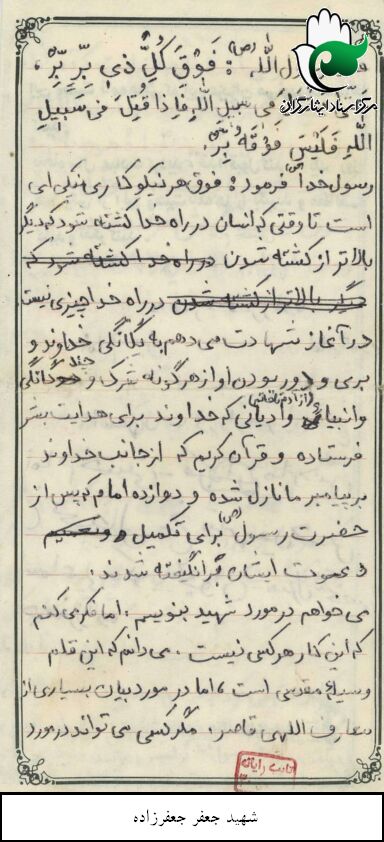 رسول الله (ص): فَوْقَ كُلِّ ذي بِرٍّ بِرٌّ،
فی سبیل اللهِ فَاِذا قُتِلَ فی سَبیلِ
اللهِ فَلَيْسَ فَوْقَهُ بِرٌّ.
رسول خدا (ص) فرمود: فوق هر نیکوکاری نیکی ای
است تا وقتی که انسان در راه خدا کشته شود که دیگر
بالاتر از کشته شدن در راه خدا کشته شود که
دیگر بالاتر از کشته شدن در راه خدا چیزی نیست.
در آغاز شهادت می دهم به یگانگی خداوند و
بری و دور بودن او از هرگونه شرک و چند گانگی
وانبیاء و ادیانی که خداوند برای هدایت بشر
فرستاده و قرآن کریم که از جانب خداوند
بر پیامبر ما نازل شده و دوازده امام که پس از
حضرت رسول (ص) برای تکمیل
دعوت ایشان برانگیخته شدند.
می خواهم در مورد شهید بنویسم، اما فکر می کنم
که این کار هر کسی نیست. می دانم که این قلم
وسیله مقدسی است، اما در مورد بیان بسیاری از
معارف اللهی قاصر، مگر کسی می تواند در مورد
مرکز اسناد ایثارگران
شهید جعفر جعفرزاده